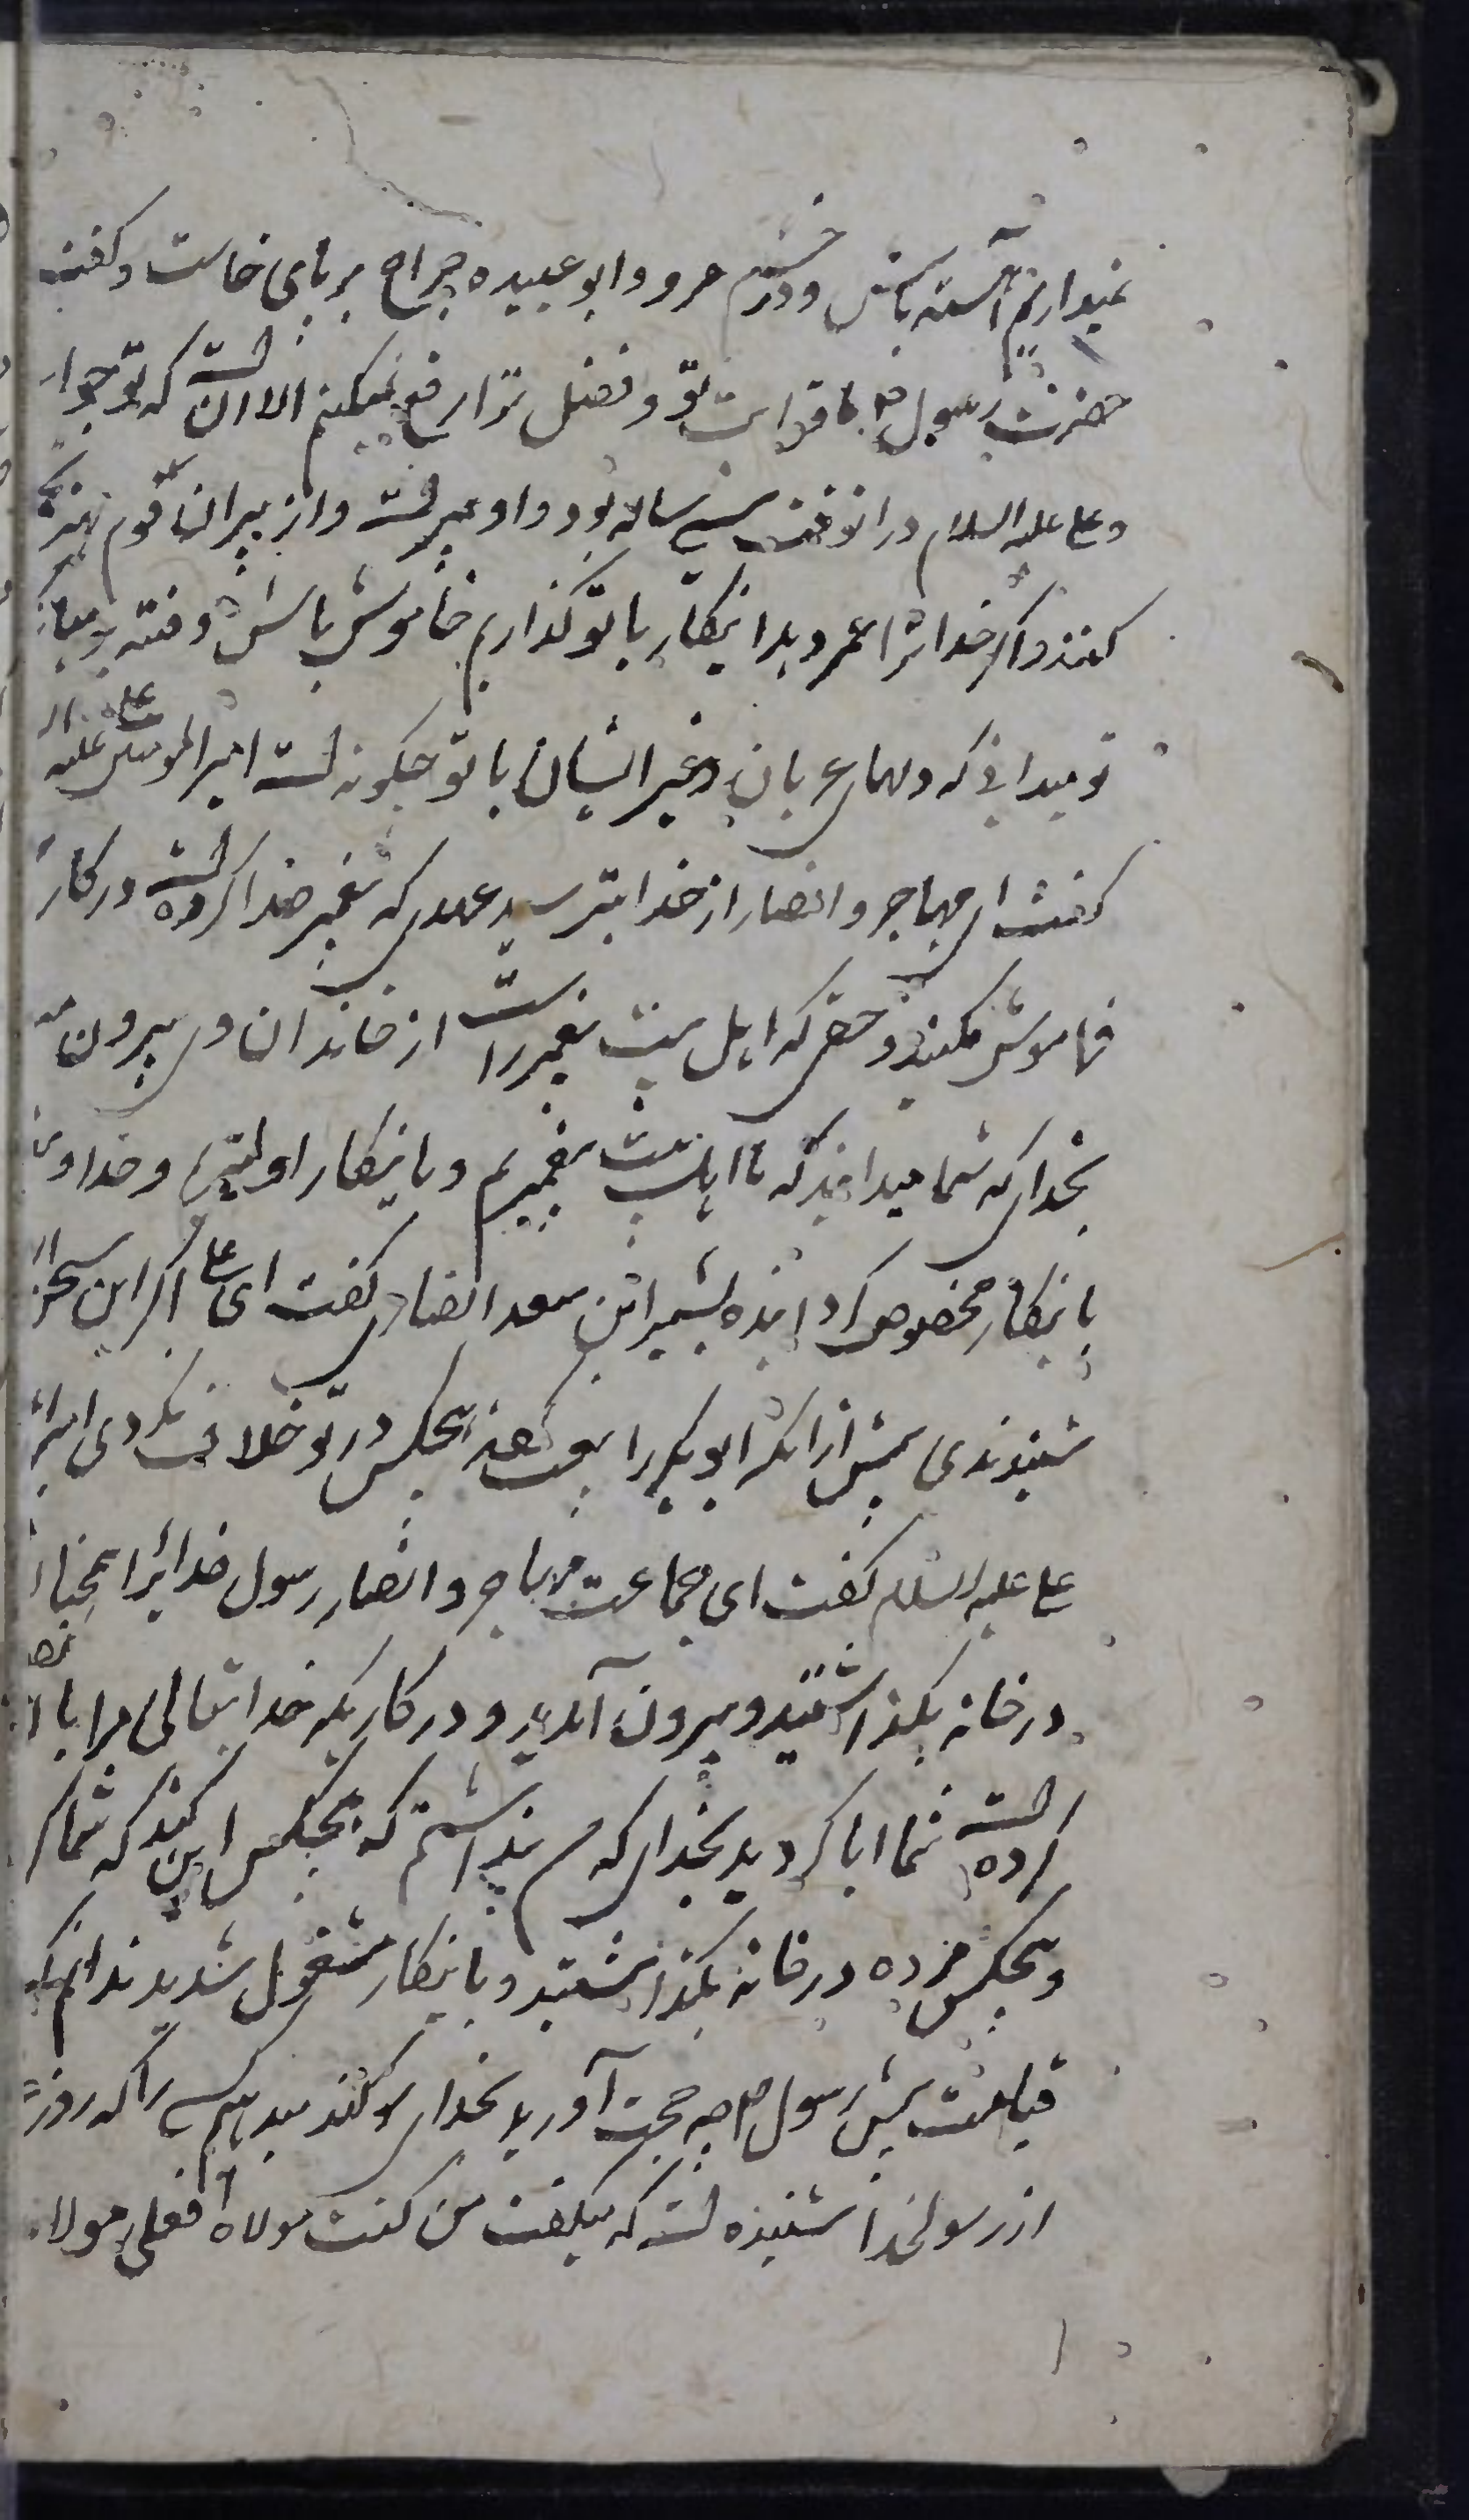 نمیداریم آهسته باش و در خشم مرو و ابو عبیده جراح بر پای خاست و گفت
حضرت رسول ص با قرابت تو و فضل ترا رفع نمیکنم الا آن است که تو جوا
و علی علیه السلام در آنوقت سی ساله بود و او پیرست و از پیران قوم
کنند و اگر خدا ترا عمر دهد اینکار با تو گذاریم خاموش باش و فتنه
تو میدانی که دلهای عربان و غیر ایشان با تو چگونه است امیر المومنین علی علیه ال
گفت ای مهاجر و انصار از خدا بترسید عهدی که پیغمبر خدا کرده است در کار
فراموش مکنید و حقی که اهل بیت پیغمبر راست از خاندان وی بیرون مبـ
بخدای که شما میدانید که ما اهل بیت پیغمبریم و باینکار اولیتریم و خداوند
باینکار مخصوص گردانیده بشیر ابن سعد انصاری گفت ای علی اگر این سخن از
شنیدندی پیش از آنکه ابو بکر را بیعت کنند هیچکس در تو خلاف نکردی
علی علیه السلام گفت ای جماعت مهاجر و انصار رسول خدایرا همچنان
در خانه بگذاشتید و بیرون آمدید و در کاریکه خدایتعالی مرا با
کرده است شما ابا کردید بخدای که من نپنداشتم که هیچکس این کند که شما کر
و هیچکس مرده در خانه بگذاشتید و باینکار مشغول شدید ندانم که
قیامت پیش رسول ص چه حجت آورید بخدای سوگند میدهم کسی را که روز
از رسولخدا شنیده است که میگفت من کنت مولاه فعلی مولاه